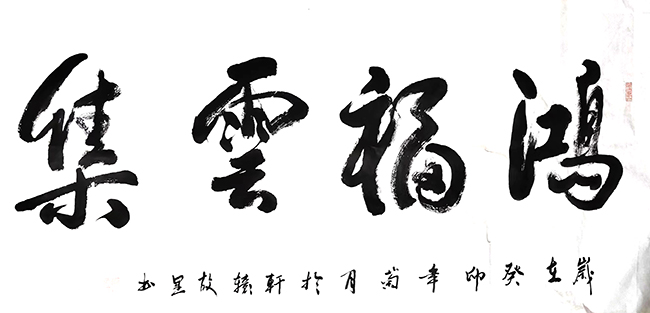 鴻福雲集
歲在癸卯年菊月於軒轅故里书